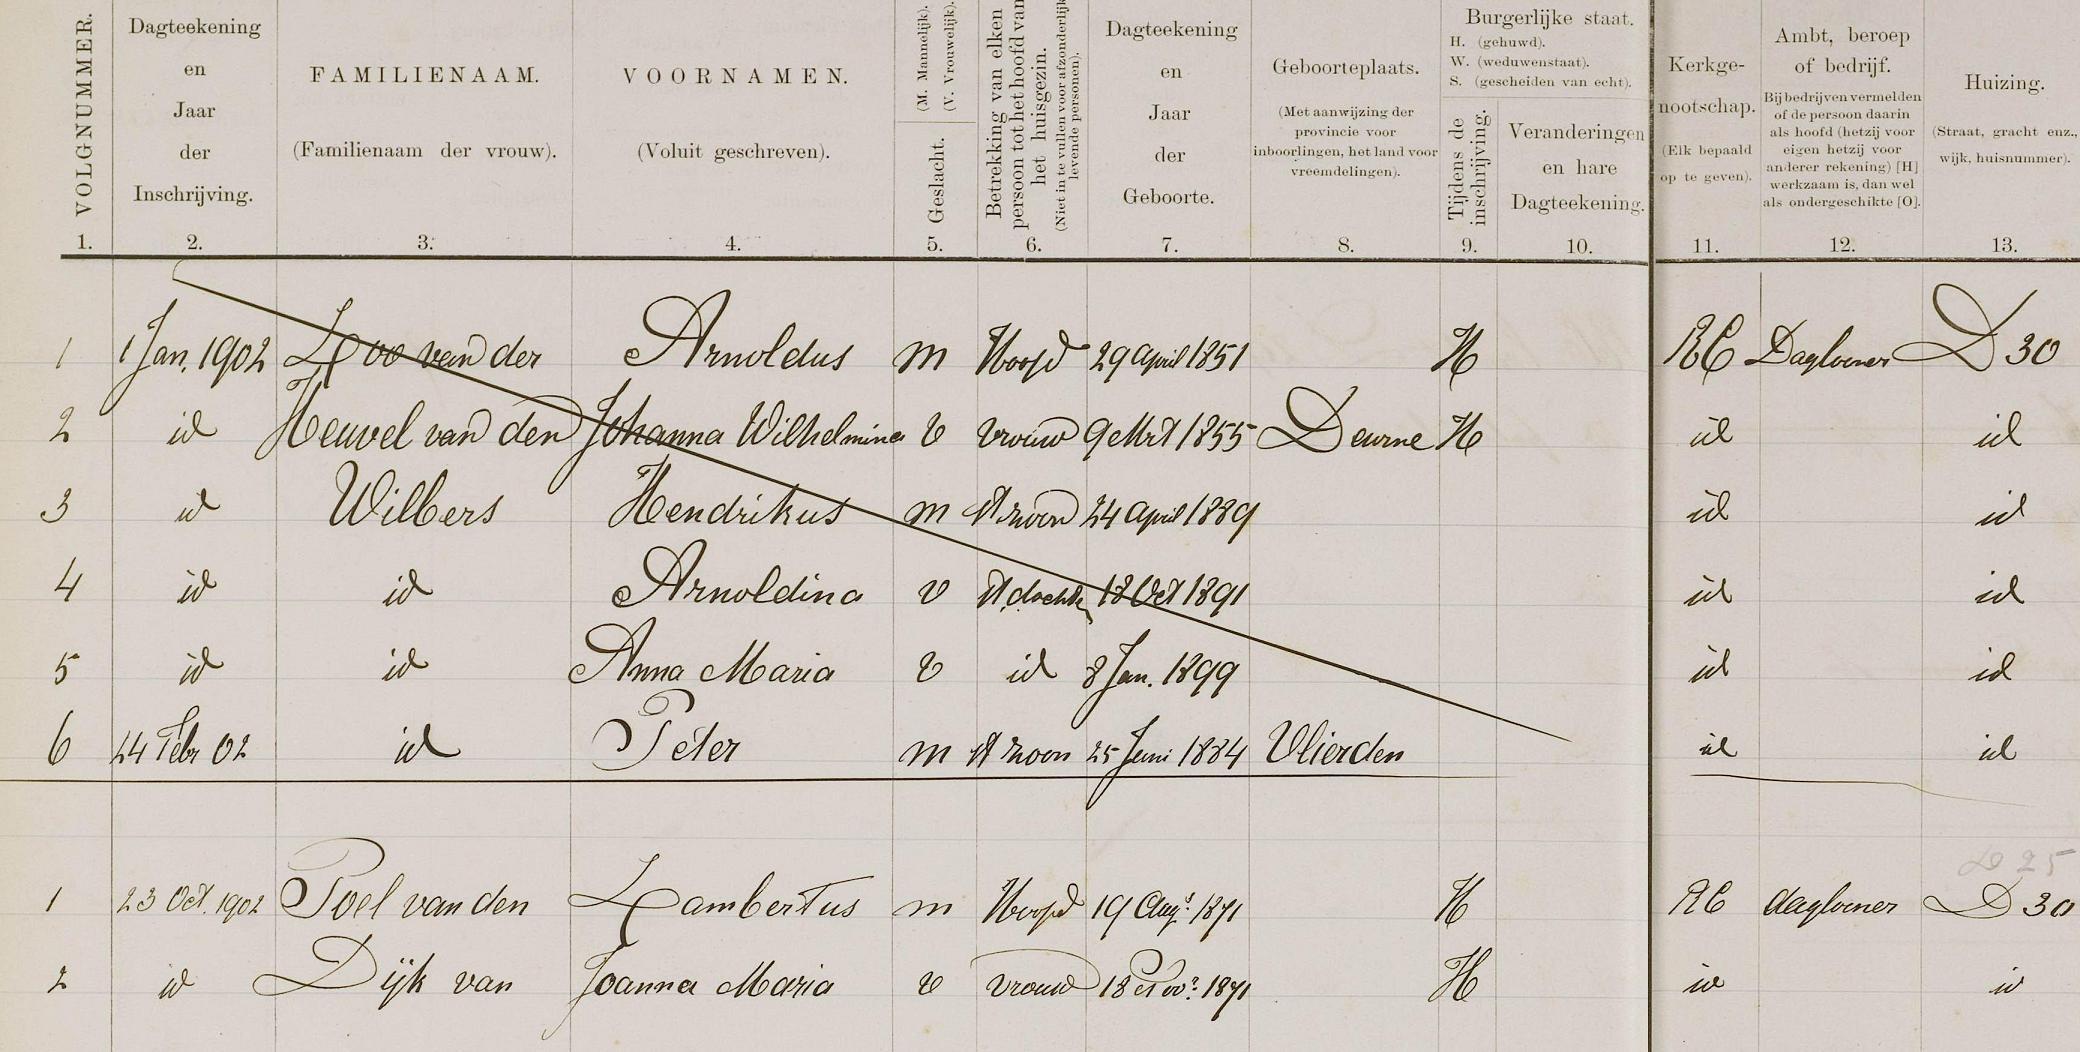 VOLGNUMMER.
1.
Dagteekening
en
Jaar
der
Inschrijving.
2.
FAMILIENAAM.
(Familienaam der vrouw).
3.
VOORNAMEN.
(Voluit geschreven).
4.
(M. Mannelijk).
(V. Vrouwelijk).
Geslacht.
5.
Betrekking van elken
persoon tot het hoofd van
het huisgezin.
(Niet in te vullen voor afzonderlijk
levende personen).
6.
Dagteekening
en
Jaar
der
Geboorte.
7.
Geboorteplaats.
(Met aanwijzing der
provincie voor
inboorlingen, het land voor
vreemdelingen).
8.
Burgerlijke staat.
H. (gehuwd).
W. (weduwenstaat).
S. (gescheiden van echt).
Tijdens de
inschrijving.
9.
Veranderingen
en hare
Dagteekening.
10.
Kerkge-
nootschap.
(Elk bepaald
op te geven).
11.
Ambt, beroep
of bedrijf.
Bij bedrijven vermelden
of de persoon daarin
als hoofd (hetzij voor
eigen hetzij voor
anderer rekening) [H]
werkzaam is, dan wel
als ondergeschikte [O].
12.
Huizing.
(Straat, gracht enz.,
wijk, huisnummer).
13.
1 1 Jan. 1902 Loo van der Arnoldus m Hoofd 29 april 1851 H RC Dagloener D 30
2 id Heuvel van den Johanna Wilhelmina V vrouw 9 Mrt 1855 Deurne H id id
3 id Wilbers Hendrikus m st zoon 24 april 1889 id id
4 id id Arnoldina v st dochter 18 Oct 1891 id id
5 id id Anna Maria V id 8 Jan. 1899 id id
6 24 Febr 02 id Peter m st zoon 25 Juni 1884 Vlierden id id
D 25
1 23 Oct. 1902 Poel van den Lambertus m Hoofd 19 Augs 1871 H RC dagloener D 30
2 id Dijk van Joanna Maria v vrouw 18 Novr 1871 H id id